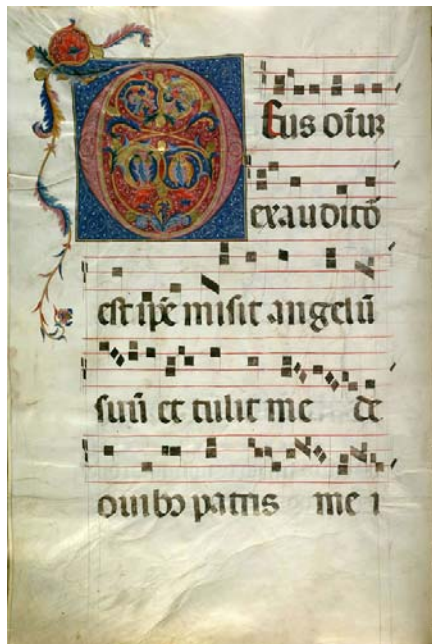 Deus oīuꝫ
exauditoꝛ
est ip̄e misit angelū
suū et tulit me de
ouibꝫ patris me i